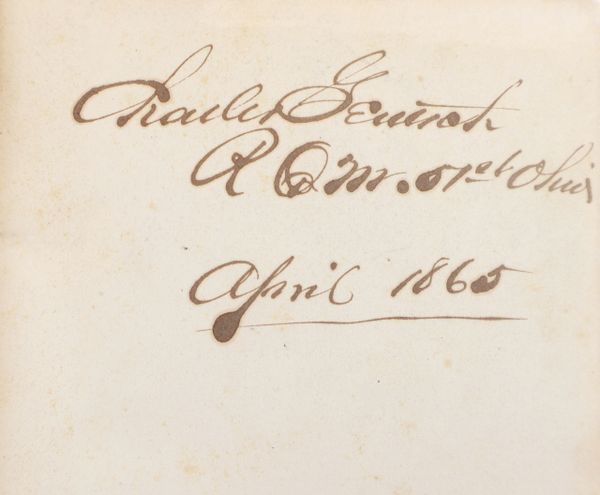 Charles Gentsch
R Q M. 51st Ohio
April 1865